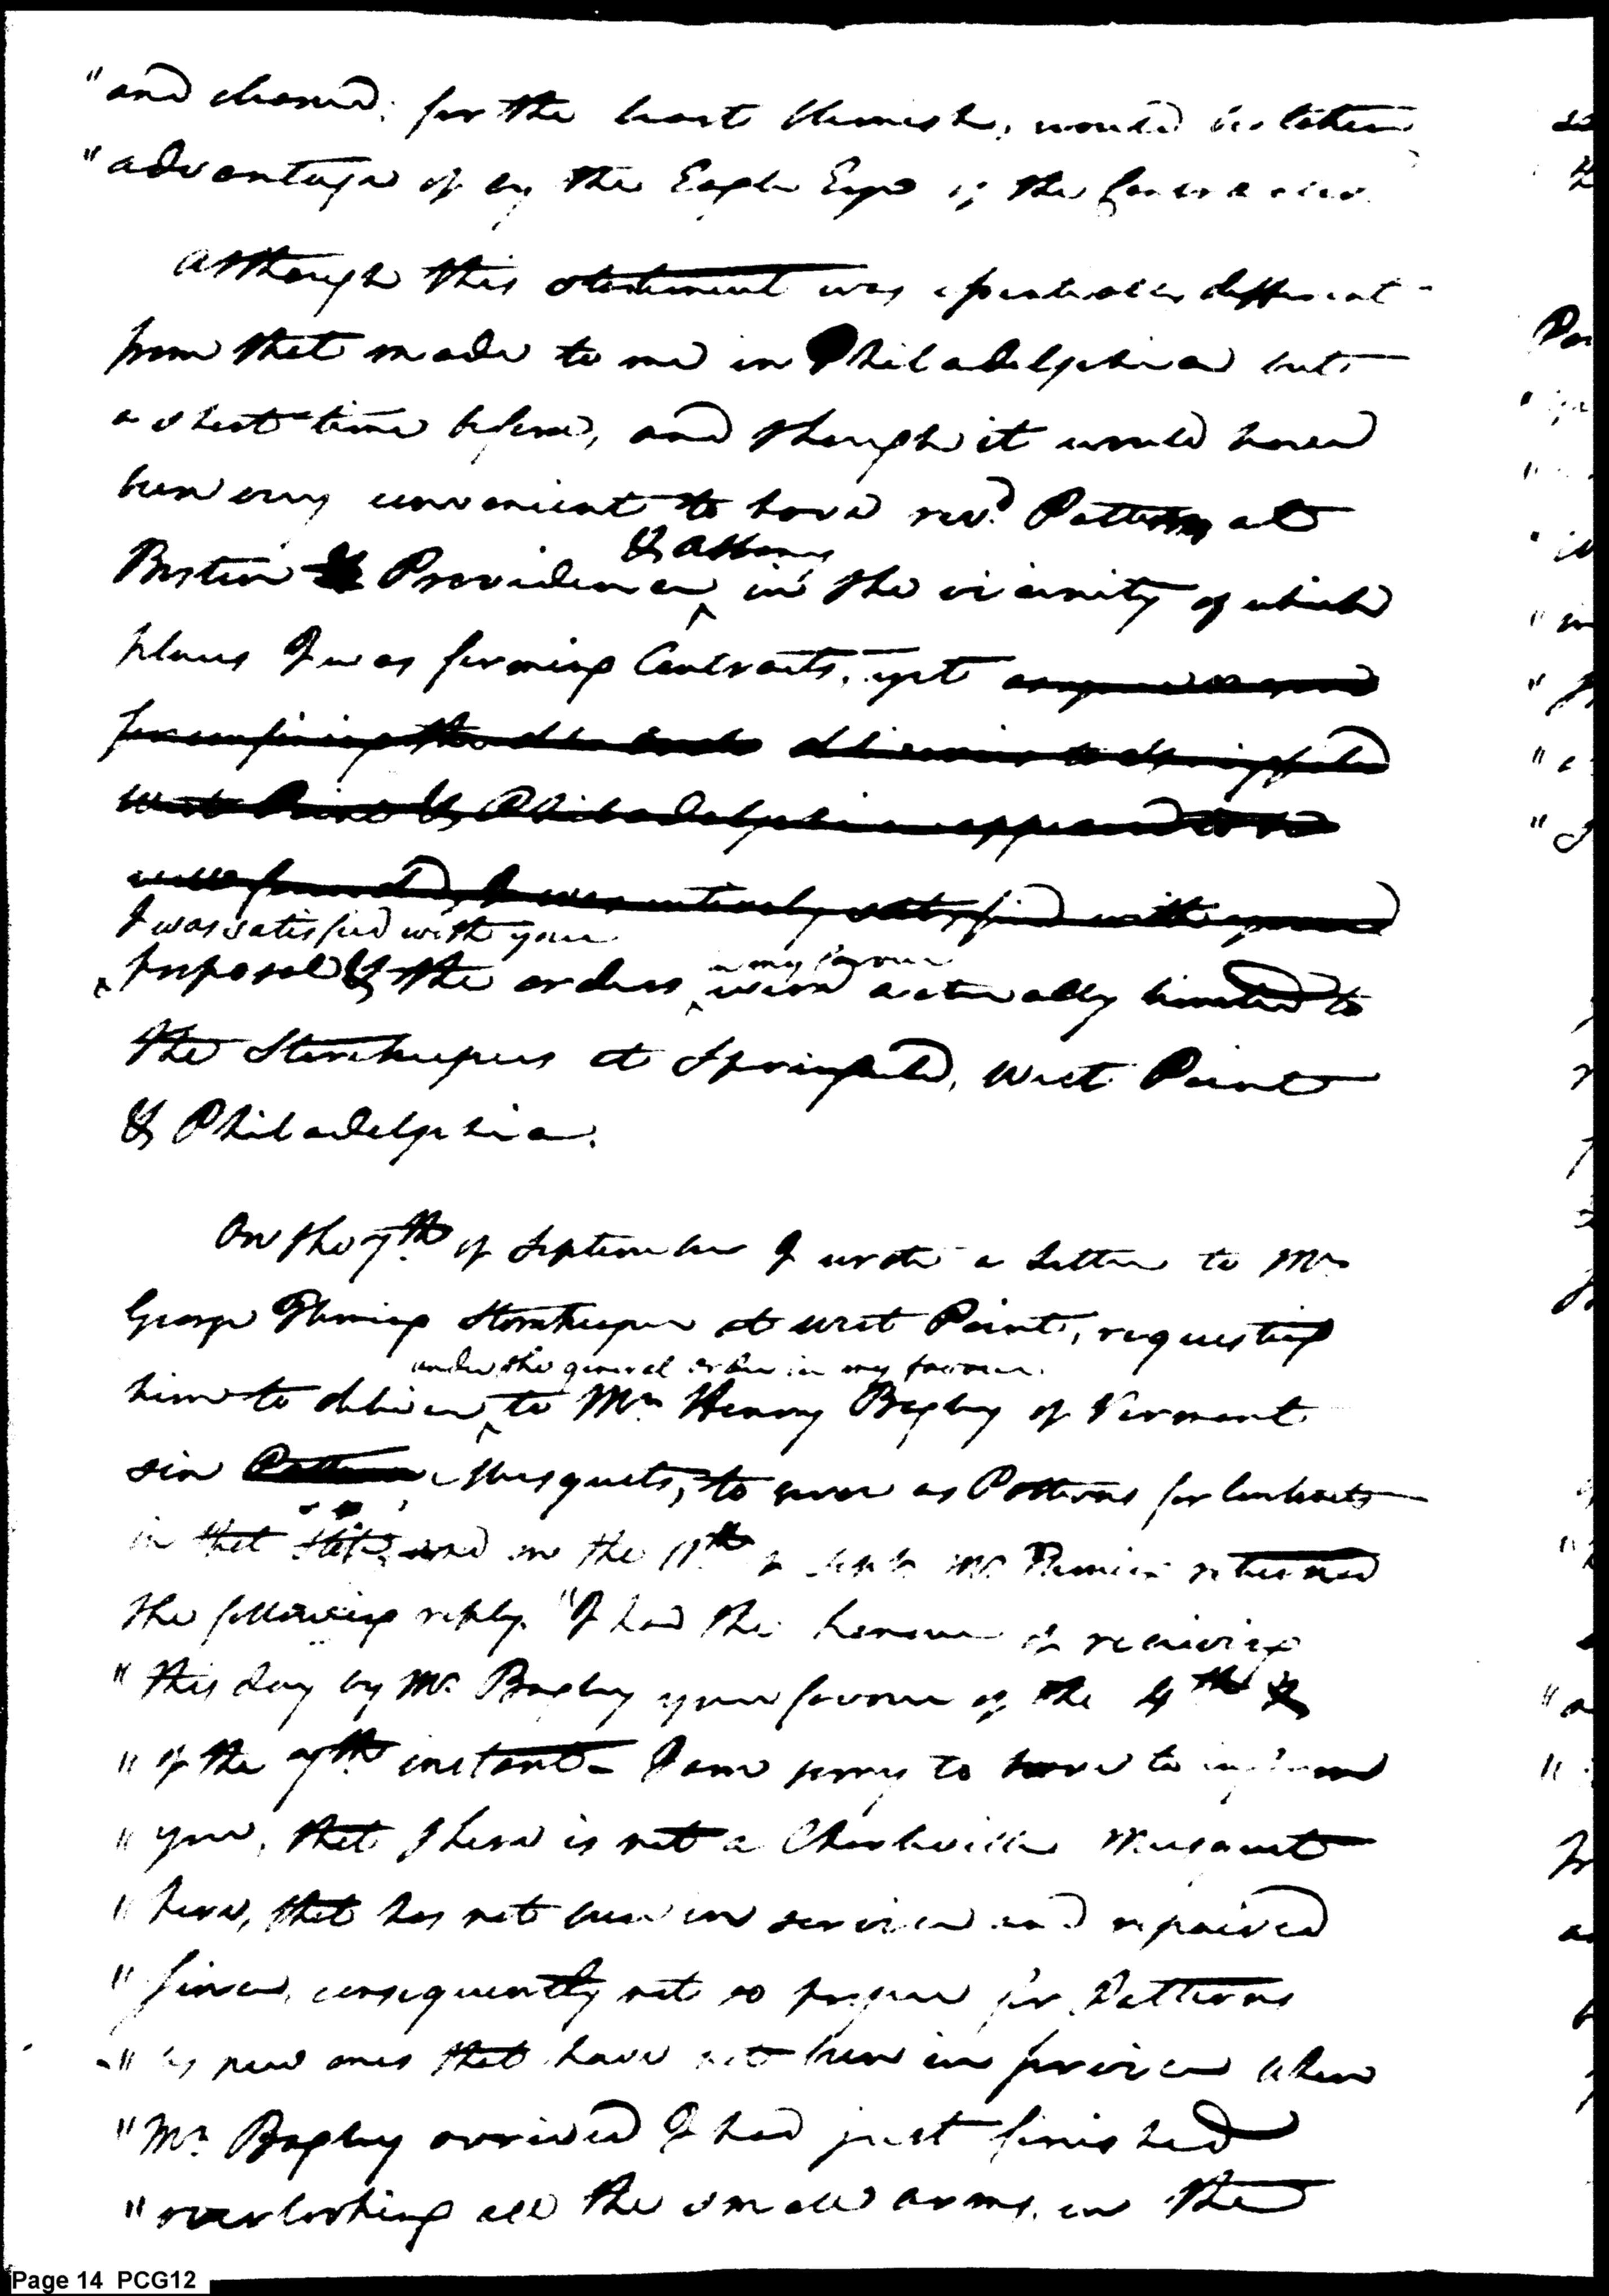 "and cleaned; for the least blemish, would be taken
"advantage of by the Eagle Eye of the
Although this statement was different
from that made to me in Philadelphia but
a short time before, and though it would have
been very convenient to have recd. Patterns at
Boston Providence & Albany in the vicinity of which
places I was forming Contracts, yet
for confining the deliveries to Springfield
West Point & Philadelphia appeared to be
well found, I was entirely satisfied with your
I was satisfied with your
proposal & the orders in my favour were actually limited to
the Storekeepers at Springfield, West Point
& Philadelphia.
On the 7th of September I wrote a Letter to Mr
George Fleming Storekeeper at West Point, requesting
under the general order in my favour
him to deliver to Mr Henry Bagley of Vermont
six Pattern Musquets, to serve as Patterns for Contracts
in that State, and on the 11th of Septr Mr Fleming returned
the following reply. "I had the honour of receiving
"this day by Mr Bagley your favour of the 4th &
"of the 7th instant - I am sorry to have to inform
"you, that there is not a Charleville Musquet
"here, that has not been in service and repaired
"since, consequently not so proper for Patterns
"as new ones that have not been in service when
"Mr Bagley arrived I had just finished
"overlooking all the small arms, in the
Page 14 PCG12